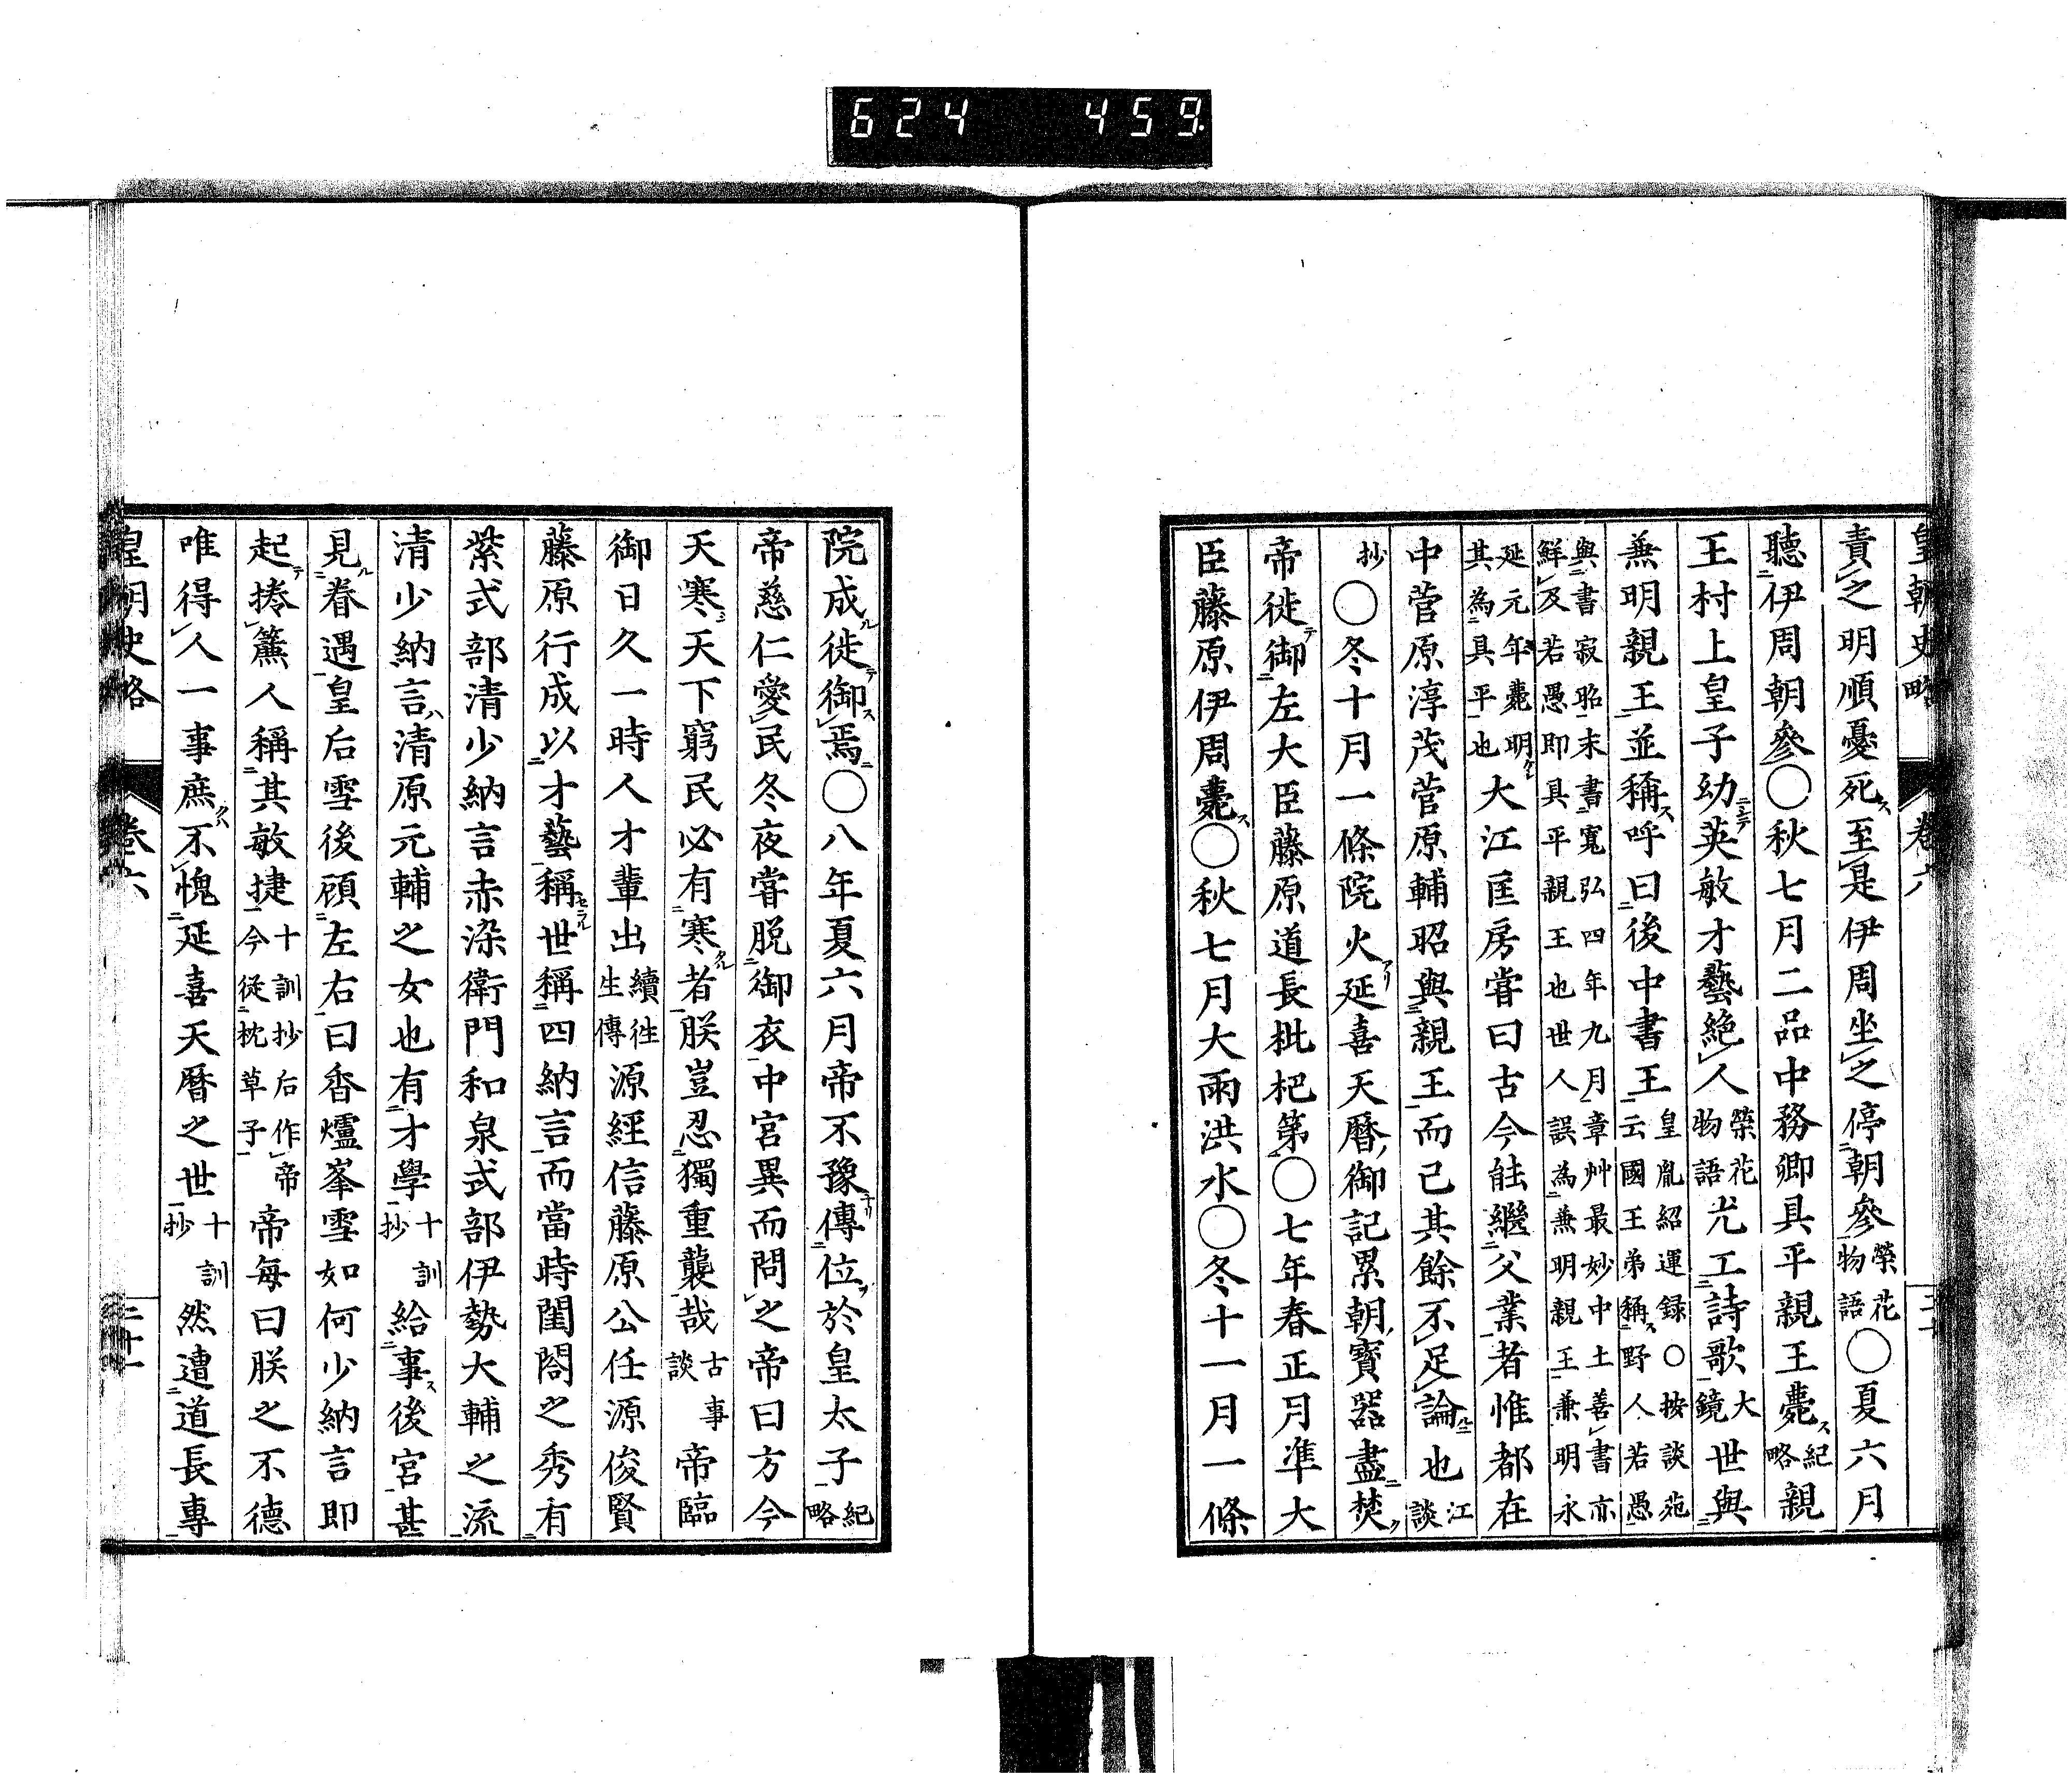 624 459
皇朝史略 卷六
責之明順憂死至是伊周坐之停朝參榮花物語○夏六月
聽伊周朝參○秋七月二品中務卿具平親王薨紀略親
王村上皇子幼英敏才藝絶人榮花物語尤工詩歌大鏡世與
兼明親王並稱呼曰後中書王皇胤紹運録云國王弟稱野人若愚○按談苑
與書寂昭末書寬弘四年九月章艸最妙中土善書亦鮮及若愚即具平親王也世人誤為兼明親王兼明永
延元年薨明其為具平也大江匡房甞曰古今能繼父業者惟都在
中菅原淳茂菅原輔昭與親王而已其餘不足論也江談
抄○冬十月一條院火延喜天曆御記累朝寶器盡焚
帝徙御左大臣藤原道長枇杷第○七年春正月準大
臣藤原伊周薨○秋七月大雨洪水○冬十一月一條
院成徙御焉○八年夏六月帝不豫傳位於皇太子紀略
帝慈仁愛民冬夜甞脱御衣中宮異而問之帝曰方今
天寒天下窮民必有寒者朕豈忍獨重襲哉古事談帝臨
御日久一時人才輩出續往生傳源經信藤原公任源俊賢
藤原行成以才藝稱世稱四納言而當時閨閤之秀有
紫式部清少納言赤染衛門和泉式部伊勢大輔之流
清少納言清原元輔之女也有才學十訓抄給事後宮甚
見眷遇皇后雪後顧左右曰香爐峯雪如何少納言即
起捲簾人稱其敏捷十訓抄后作帝今從枕草子帝每曰朕之不德
唯得人一事庶不愧延喜天曆之世十訓抄然遭道長專
皇朝史略 卷六 二十一